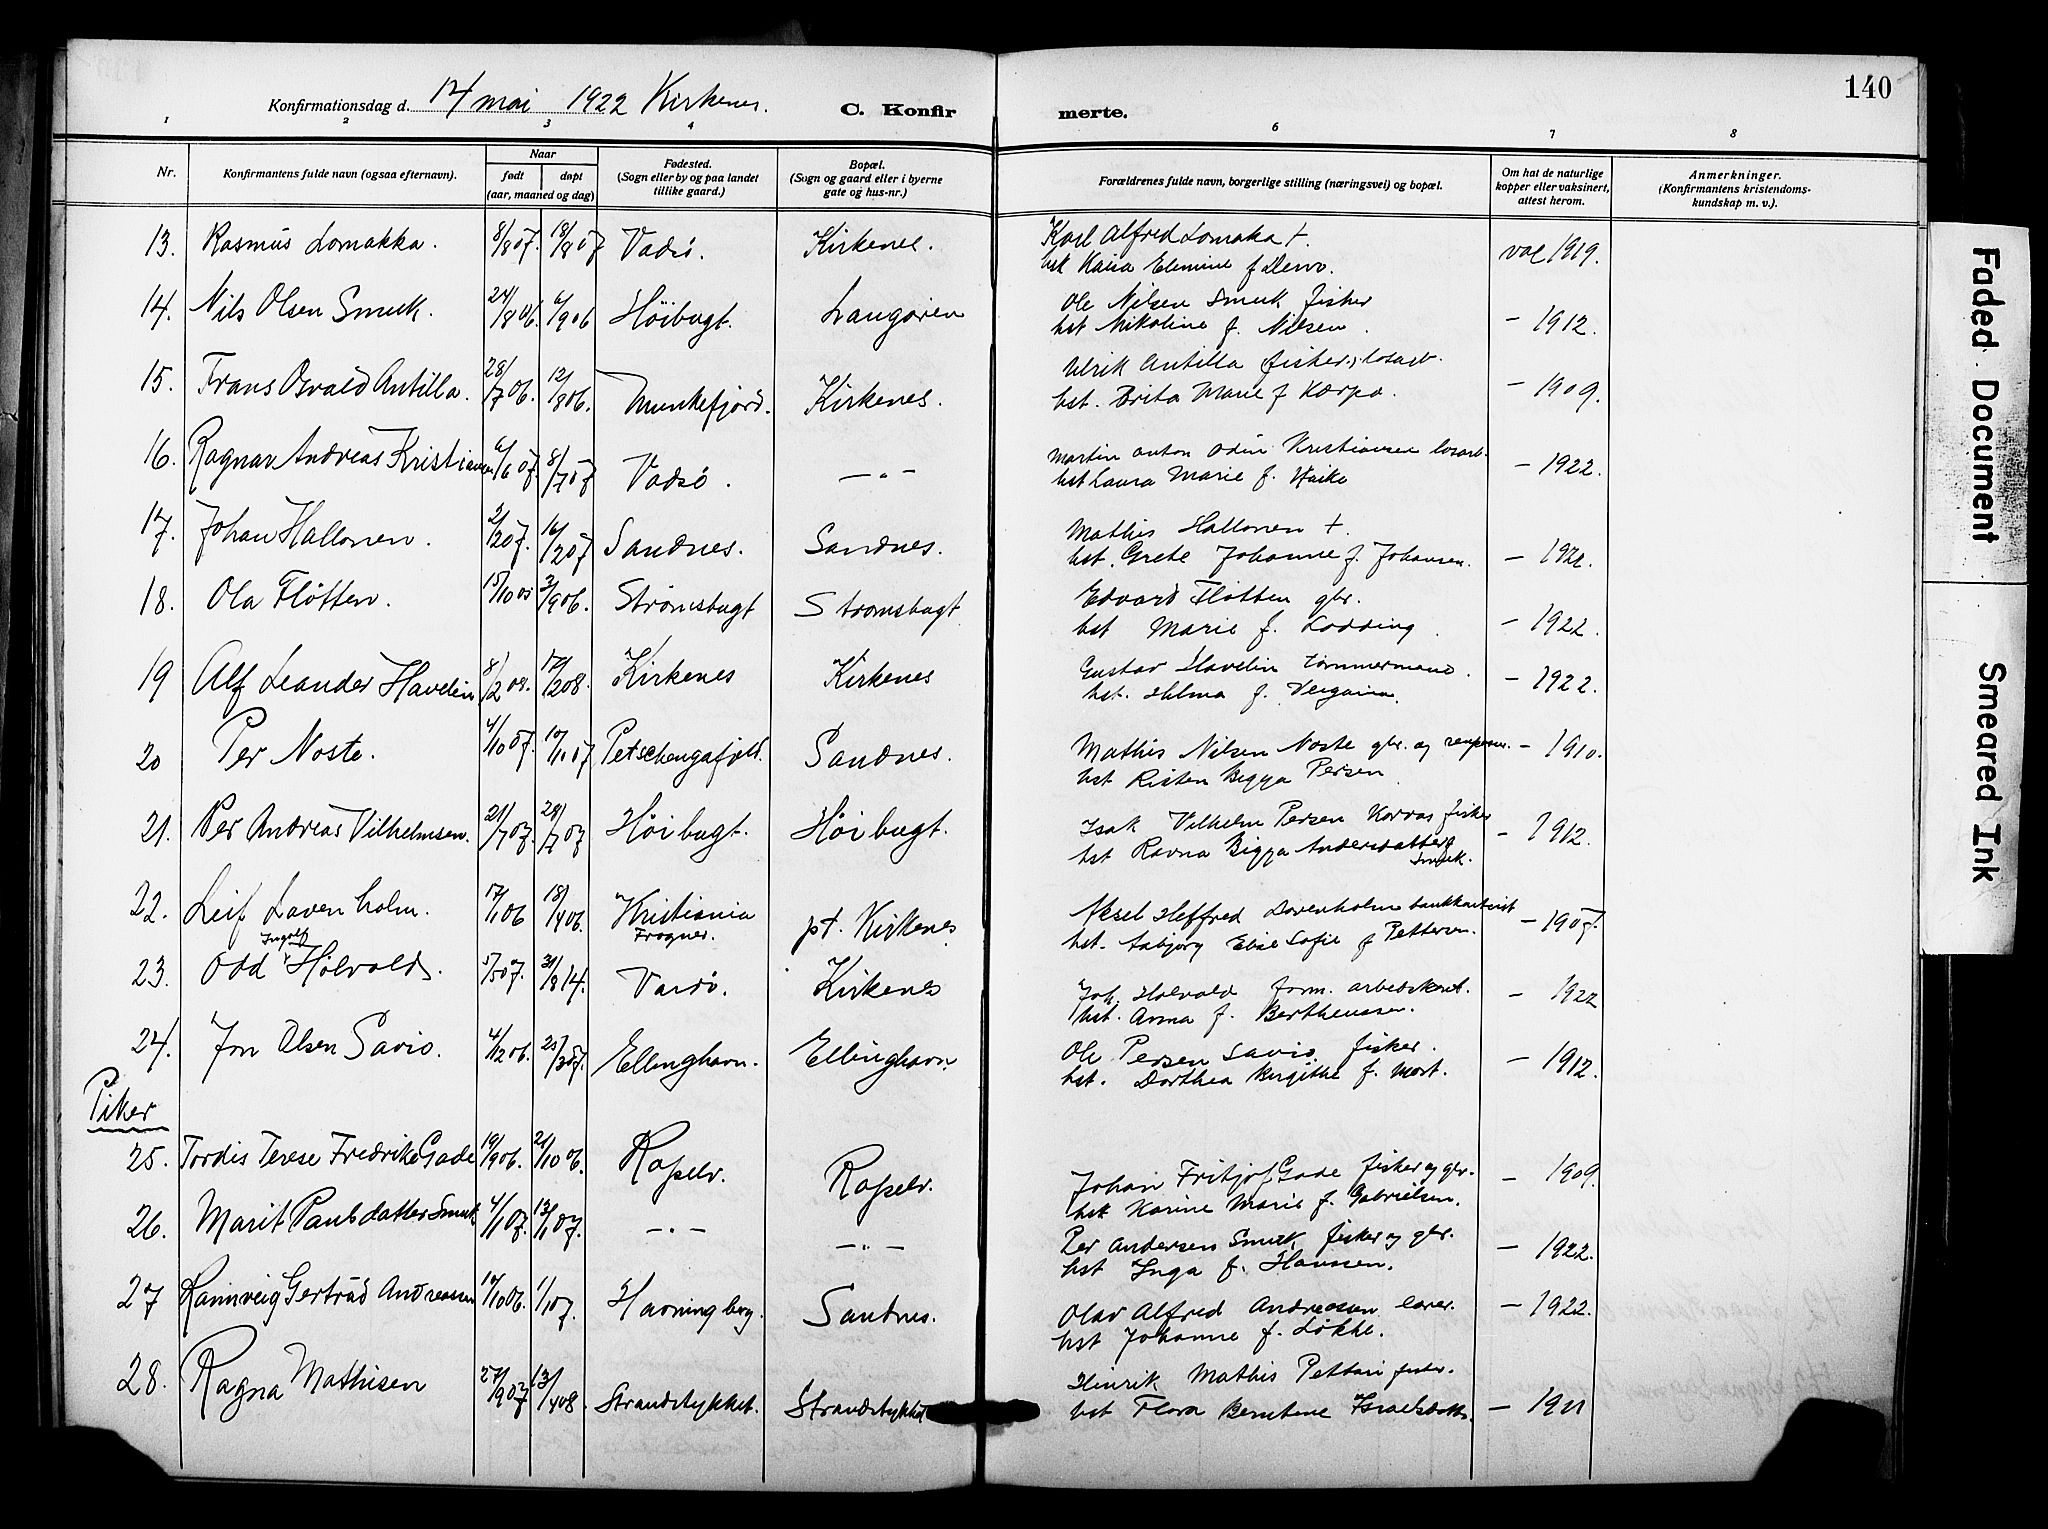 140
Konfirmationsdag d. 14 mai 1922 Kirkenes.
C. Konfirmerte.
1 2 3 4 6 7 8
Nr.
Konfirmantens fulde navn (ogsaa efternavn).
Naar
født døpt
(aar, maaned og dag)
Fødested.
(Sogn eller by og paa landet
tillike gaard.)
Bopæl.
(Sogn og gaard eller i byerne
gate og hus-nr.)
Forældrenes fulde navn, borgerlige stilling (næringsvei) og bopæl.
Om hat de naturlige
kopper eller vaksinert,
attest herom.
Anmerkninger.
(Konfirmantens kristendoms-
kundskap m. v.).
13. Rasmus Lomakka. 8/8 07. 18/8 07 Vadsø. Kirkenes. Karl Alfred Lomaka +. vac 1919.
hst Kaisa Elemine f
14. Nils Olsen Smuk. 24/8 06. 6/9 06 Høibugt. Langøren Ole Nilsen Smuk fisker
hst Nikoline f. Nilsen. – 1912.
15. Frans Osvald Antilla. 28/7 06. 12/8 06. Munkefjord. Kirkenes. Ulrik Antilla fisker, losarb.
hst. Brita Marie f Karpa. – 1909.
16. Ragnar Andreas Kristiansen 6/6 07. 8/7 07 Vadsø. –"– Martin Anton Odin Kristiansen losarb.
hst Laura Marie f. Haiko – 1922.
17. Johan Hallonen. 2/2 07. 16/2 07 Sandnes. Sandnes. Mathis Hallonen +.
hst. Grete Johanne f. Johansen.
18. Ola Fløtten. 15/10 05 3/9 06. Strømsbugt Strømsbugt. Edvard Fløtten gbr.
hst Marie f. Lodding. – 1922.
19 Alf Leander Havelin 8/2 08. 17/2 08. Kirkenes Kirkenes Gustav Havelin tømmermand.
hst. Hilma f. – 1922.
20 Per Noste. 4/10 07. Petschengafjeld. Sandnes. Mathis Nilsen Noste gbr. og – 1910.
hst Risten Bigga Persen
21. Per Andreas Vilhelmsen. 21/7 07. 28/7 07 Høibugt. Høibugt. Isak Vilhelm Persen Korras fisker
hst Ravna Bigga Andersdatter – 1912.
Smuk.
22. Leif Lavenholm. 17/1 06 18/4 06. Kristiania pt. Kirkenes Aksel
Frogner. hst. Asbjørg Elise Sofie f Pettersen. – 1907.
Ingolf
23. Odd Hølvold. 5/5 07. 31/8 14. Vardø. Kirkenes Joh. Hølvold form. arbeidskont.
hst. Anna f. Bertheussen. – 1922
24. Jon Olsen Savio. 4/12 06. 25/3 07. Ellinghavn. Ellinghavn. Ole Persen Savio fisker.
hst. Dorthea Birgitte f. Mort. – 1912.
Piker
25. Tordis Terese Fredrike Gade 19/9 06. 21/10 06. Ropelv. Ropelv. Johan Fritjof Gade fisker og gbr. – 1909.
hst Karine Marie f. Gabrielsen.
26. Marit Paulsdatter Smuk 4/1 07. 13/1 07. –"– –"– Per Andersen Smuk fisker og gbr. – 1922.
hst Inga f. Hanssen.
27 Rannveig Gertrud Andreassen 14/10 06. 1/1 07. Havningberg. Sandnes. Olav Alfred Andreassen lærer. – 1922.
hst Johanne f. Løkke.
28. Ragna Mathisen 27/9 07 13/4 08. Strandstykket. Strandstykket Hinrik Mathis Pettari fisker.
hst Flora Berntine Israelsdatter. – 1921
Faded Document
Smeared Ink